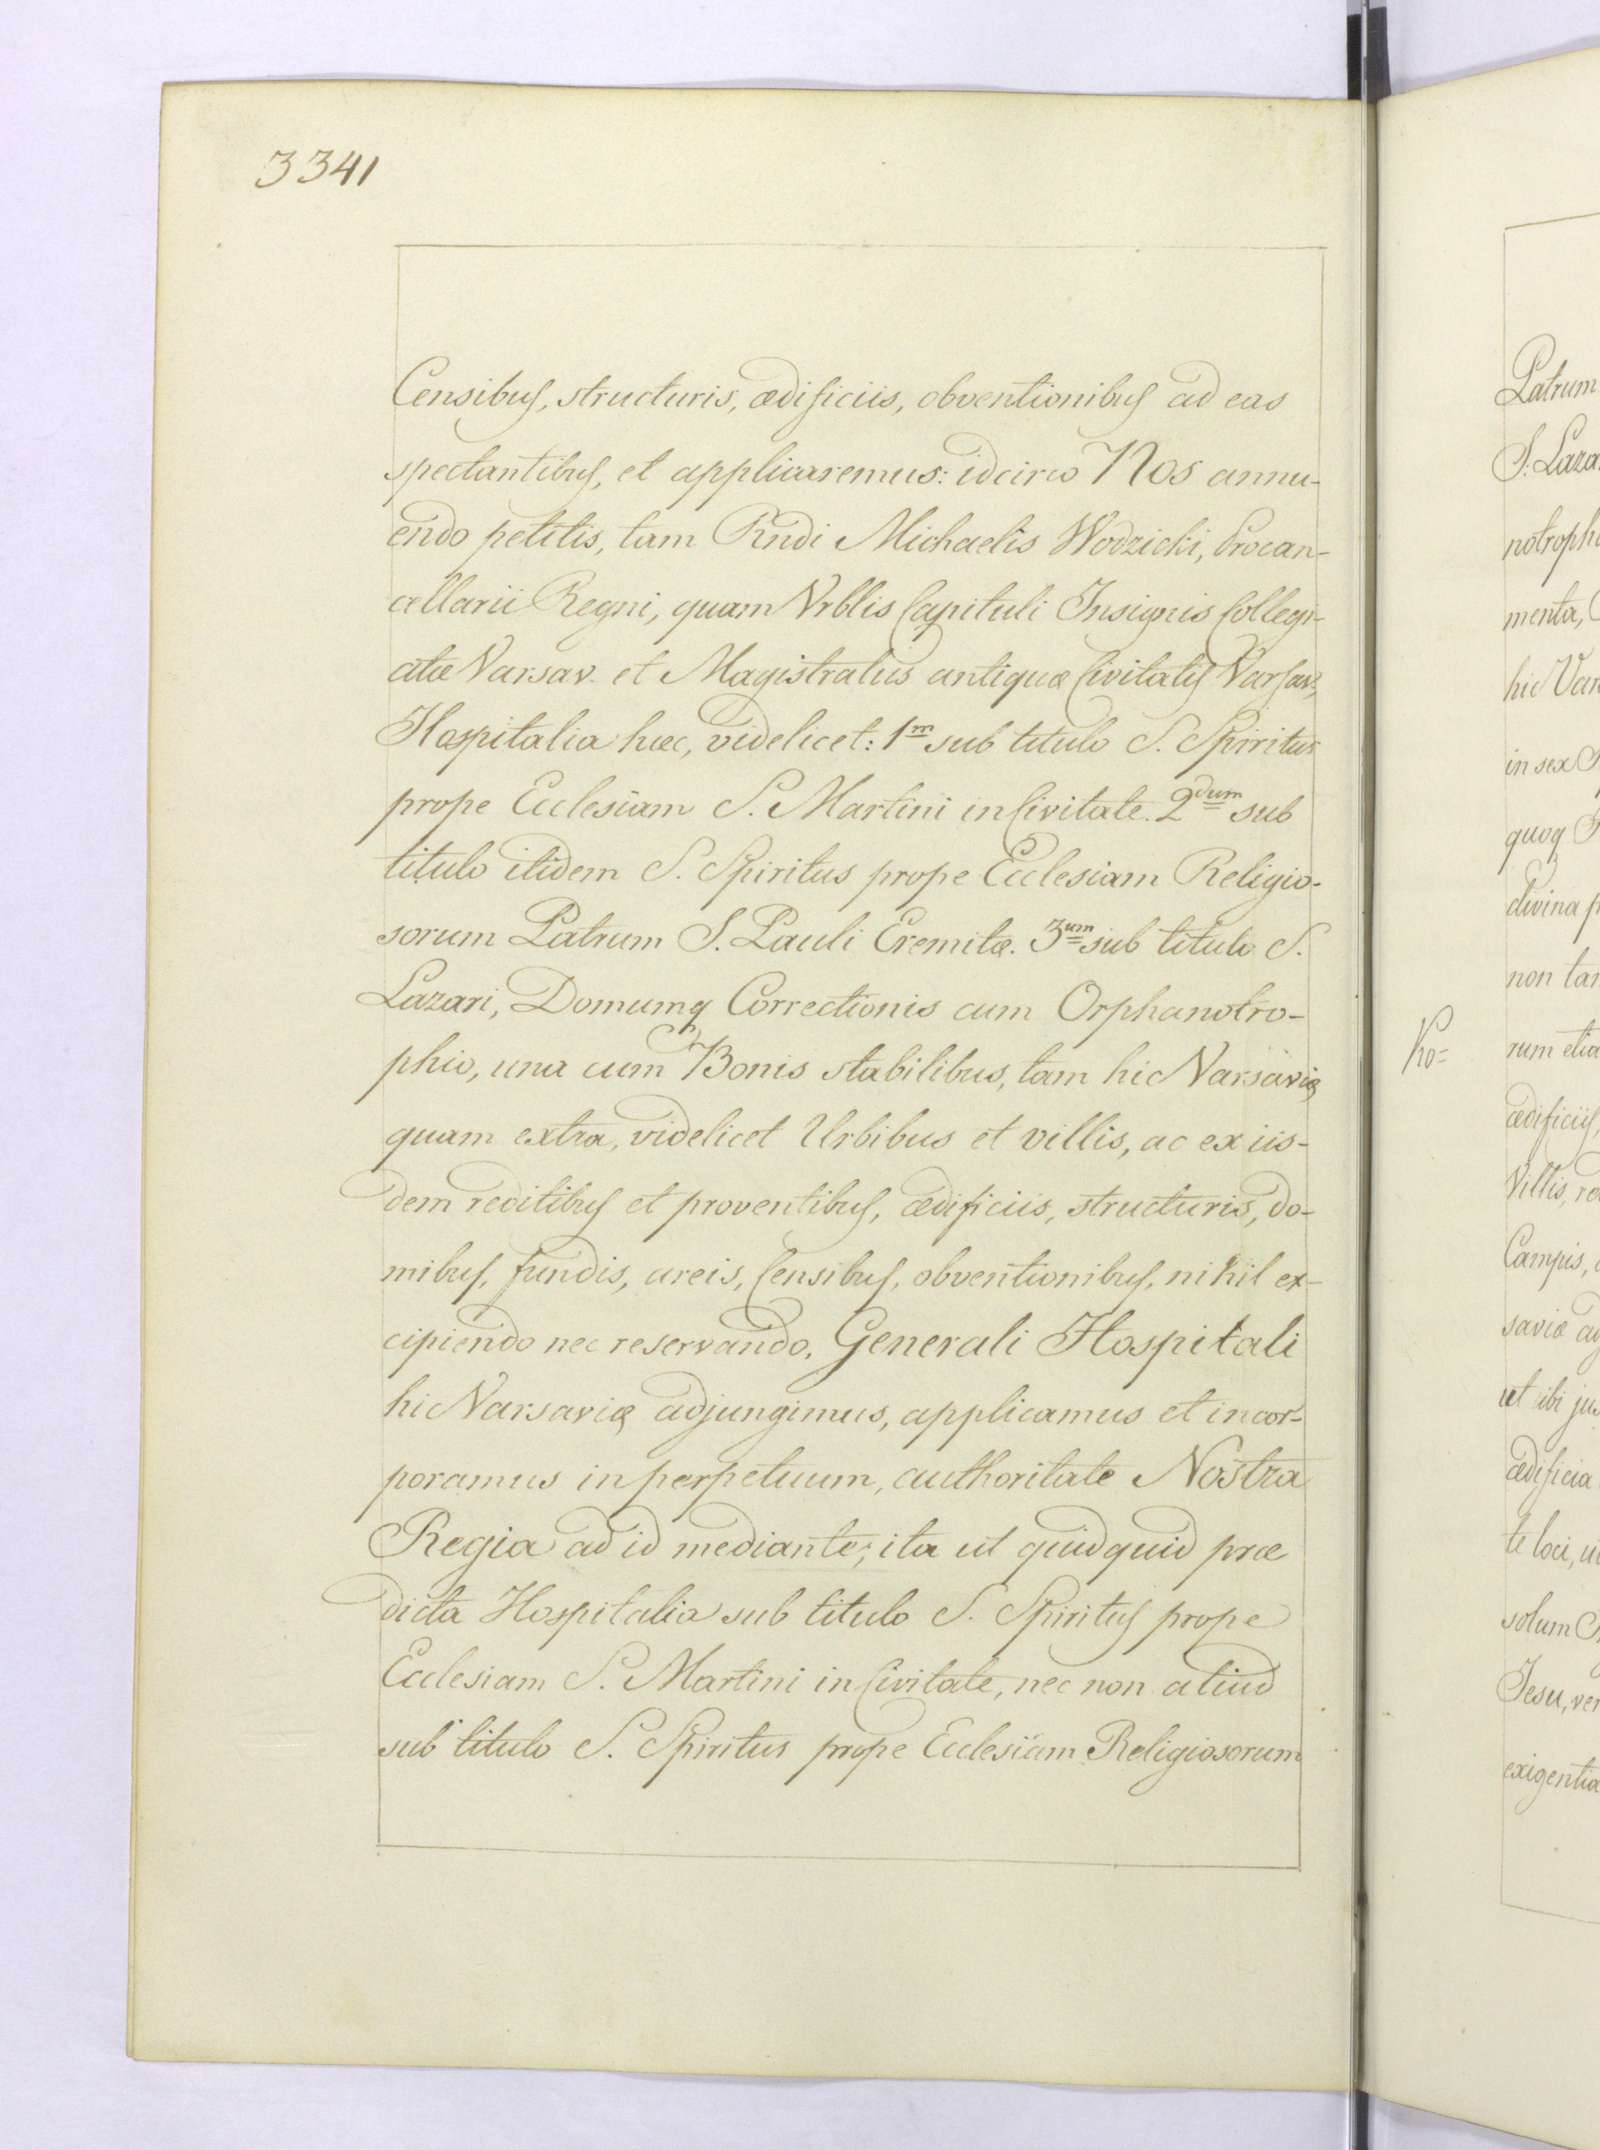 3341
Censibus, structuris, ædificiis, obventionibus ad eas
spectantibus, et applicaremus: idcirco Nos annu-
endo petitis, tam Rndi Michaelis Wodzicki, Procan-
cellarii Regni, quam Vrblis Capituli Insignis Collegi-
atæ Varsav. et Magistratus antiquæ Civitatis Varsav.,
Hospitalia hæc, videlicet: 1m sub titulo S. Spiritus
prope Ecclesiam S. Martini in Civitate. 2dum sub
titulo itidem S. Spiritus prope Ecclesiam Religio-
sorum Patrum S. Pauli Eremitæ. 3um sub titulo S.
Lazari, Domumq Correctionis cum Orphanotro-
phio, una cum Bonis stabilibus, tam hic Varsaviæ
quam extra, videlicet Urbibus et villis, ac ex iis-
dem reditibus et proventibus, ædificiis, structuris, do-
mibus, fundis, areis, Censibus, obventionibus, nihil ex-
cipiendo nec reservando, Generali Hospitali
hic Varsaviæ adjungimus, applicamus et incor-
poramus in perpetuum, authoritate Nostra
Regia ad id mediante; ita ut quidquid præ
dicta Hospitalia sub titulo S. Spiritus prope
Ecclesiam S. Martini in Civitate, nec non aliud
sub titulo S. Spiritus prope Ecclesiam Religiosorum
Patrum
S. Laza
notroph
menta,
hic Var
in sex
quoq
divina p
non tan
Ko= rum etia
ædificiis,
Villis, re
Campis,
saviæ ag
ut ibi jus
ædificia
te loci, u
solum
Jesu, ver
exigentia